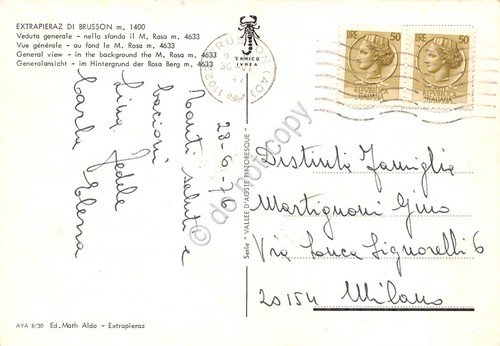 EXTRAPIERAZ DI BRUSSON m. 1400
Veduta generale - nello sfondo il M. Rosa m. 4633
Vue générale - au fond le M. Rosa m. 4633
General view - in the background the M. Rosa m. 4633
Generalansicht - in Hintergrund der Rosa Berg m. 4633
ENRICO
IVREA
BRUSSON (AO)
LIRE 50
LIRE 50
28-6-70
Tanti saluti e
bacioni
Lina Fedele
Carla Elena
Serie "VALLEE D'AOSTE PITTORESQUE"
Distinta Famiglia
Martignoni Gino
Via Luca Signorelli 6
20154 Milano
AYA 8/30 Ed. Math Aldo - Extrapieraz